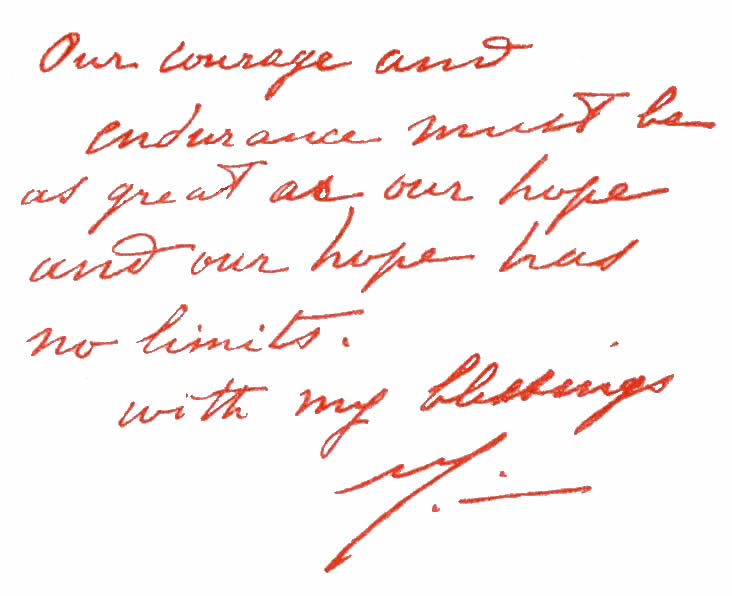 Our courage and
endurance must be
as great as our hope
and our hope has
no limits.
with my blessings